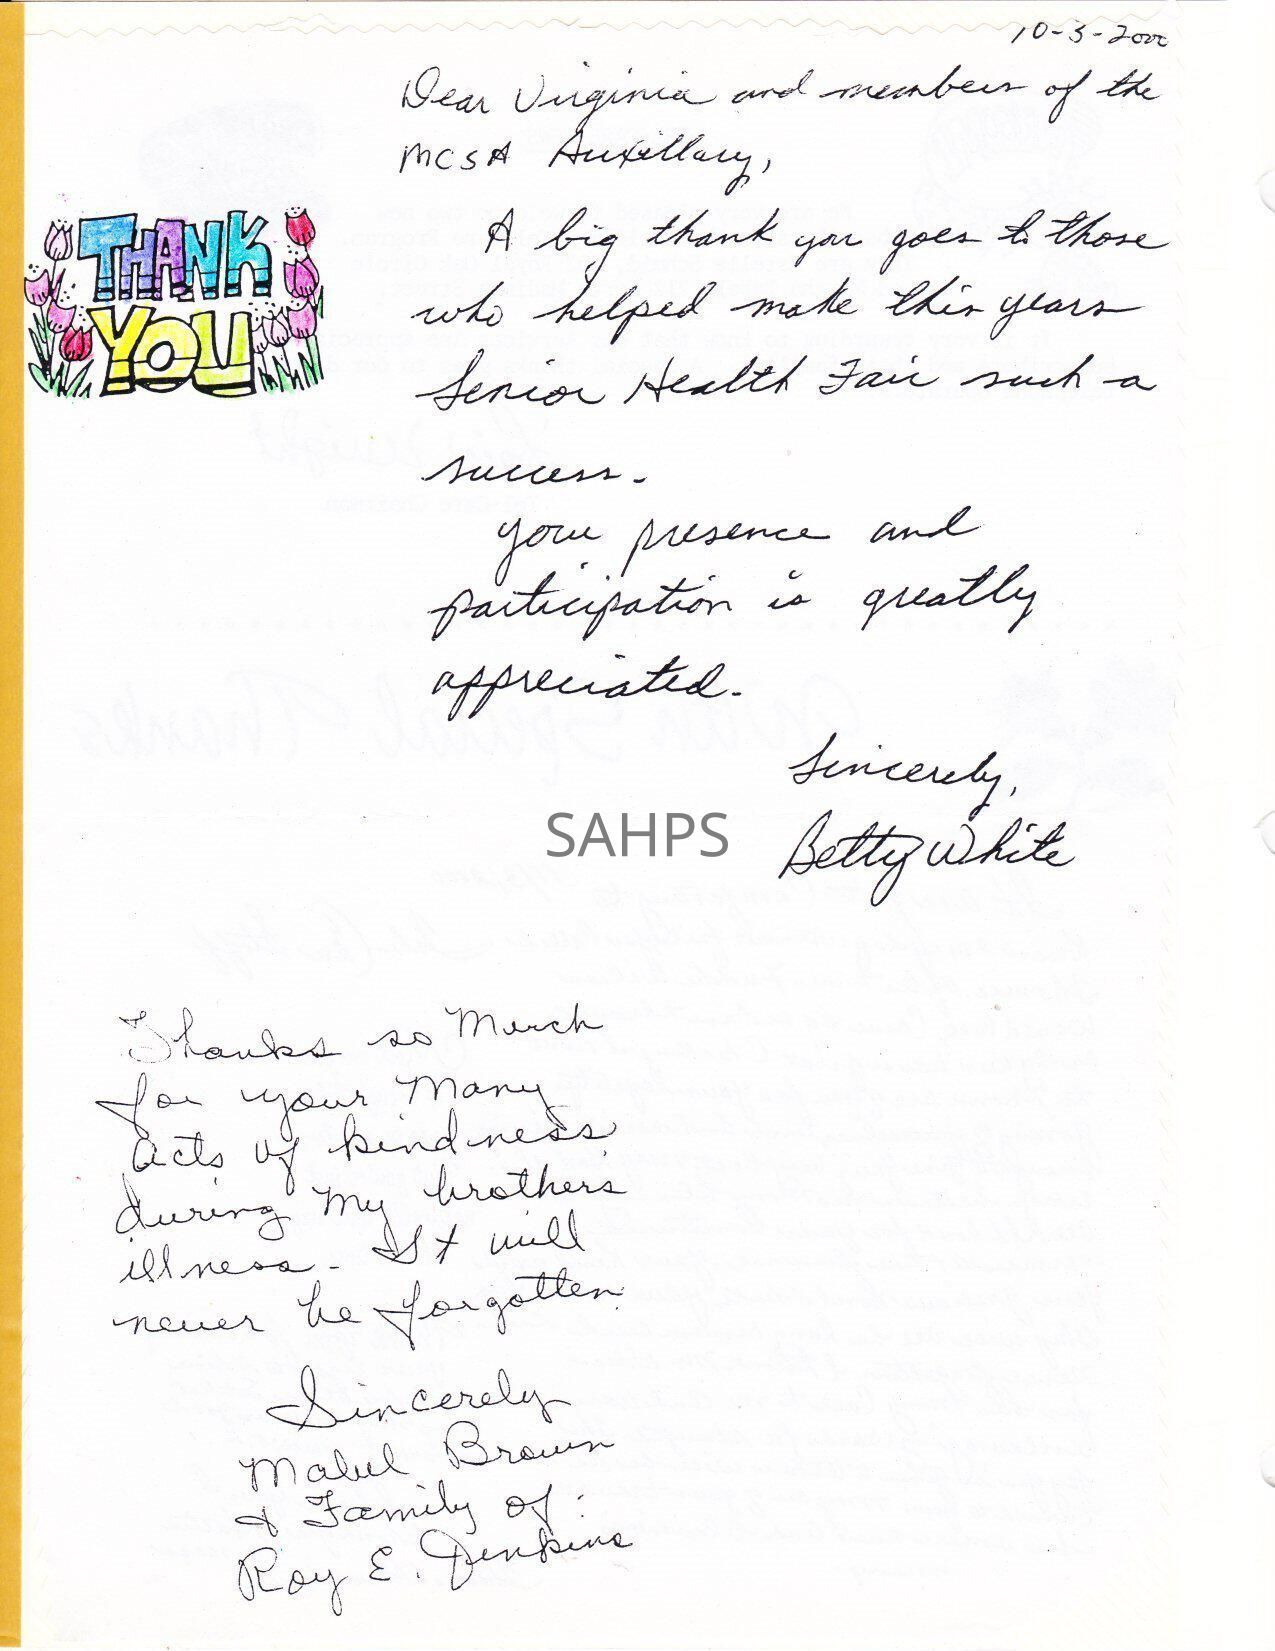 10-3-2000
Dear Virginia and members of the
MCSA Auxillary,
THANK
YOU
A big thank you goes to those
who helped make this years
Senior Health Fair such a
success.
your presence and
participation is greatly
appreciated.
Sincerely,
Betty White
SAHPS
Thanks so Much
for your Many
acts of kindness
during My brothers
illness. It will
never be forgotten
Sincerely
Mabel Brown
& Family of:
Roy E. Jenkins